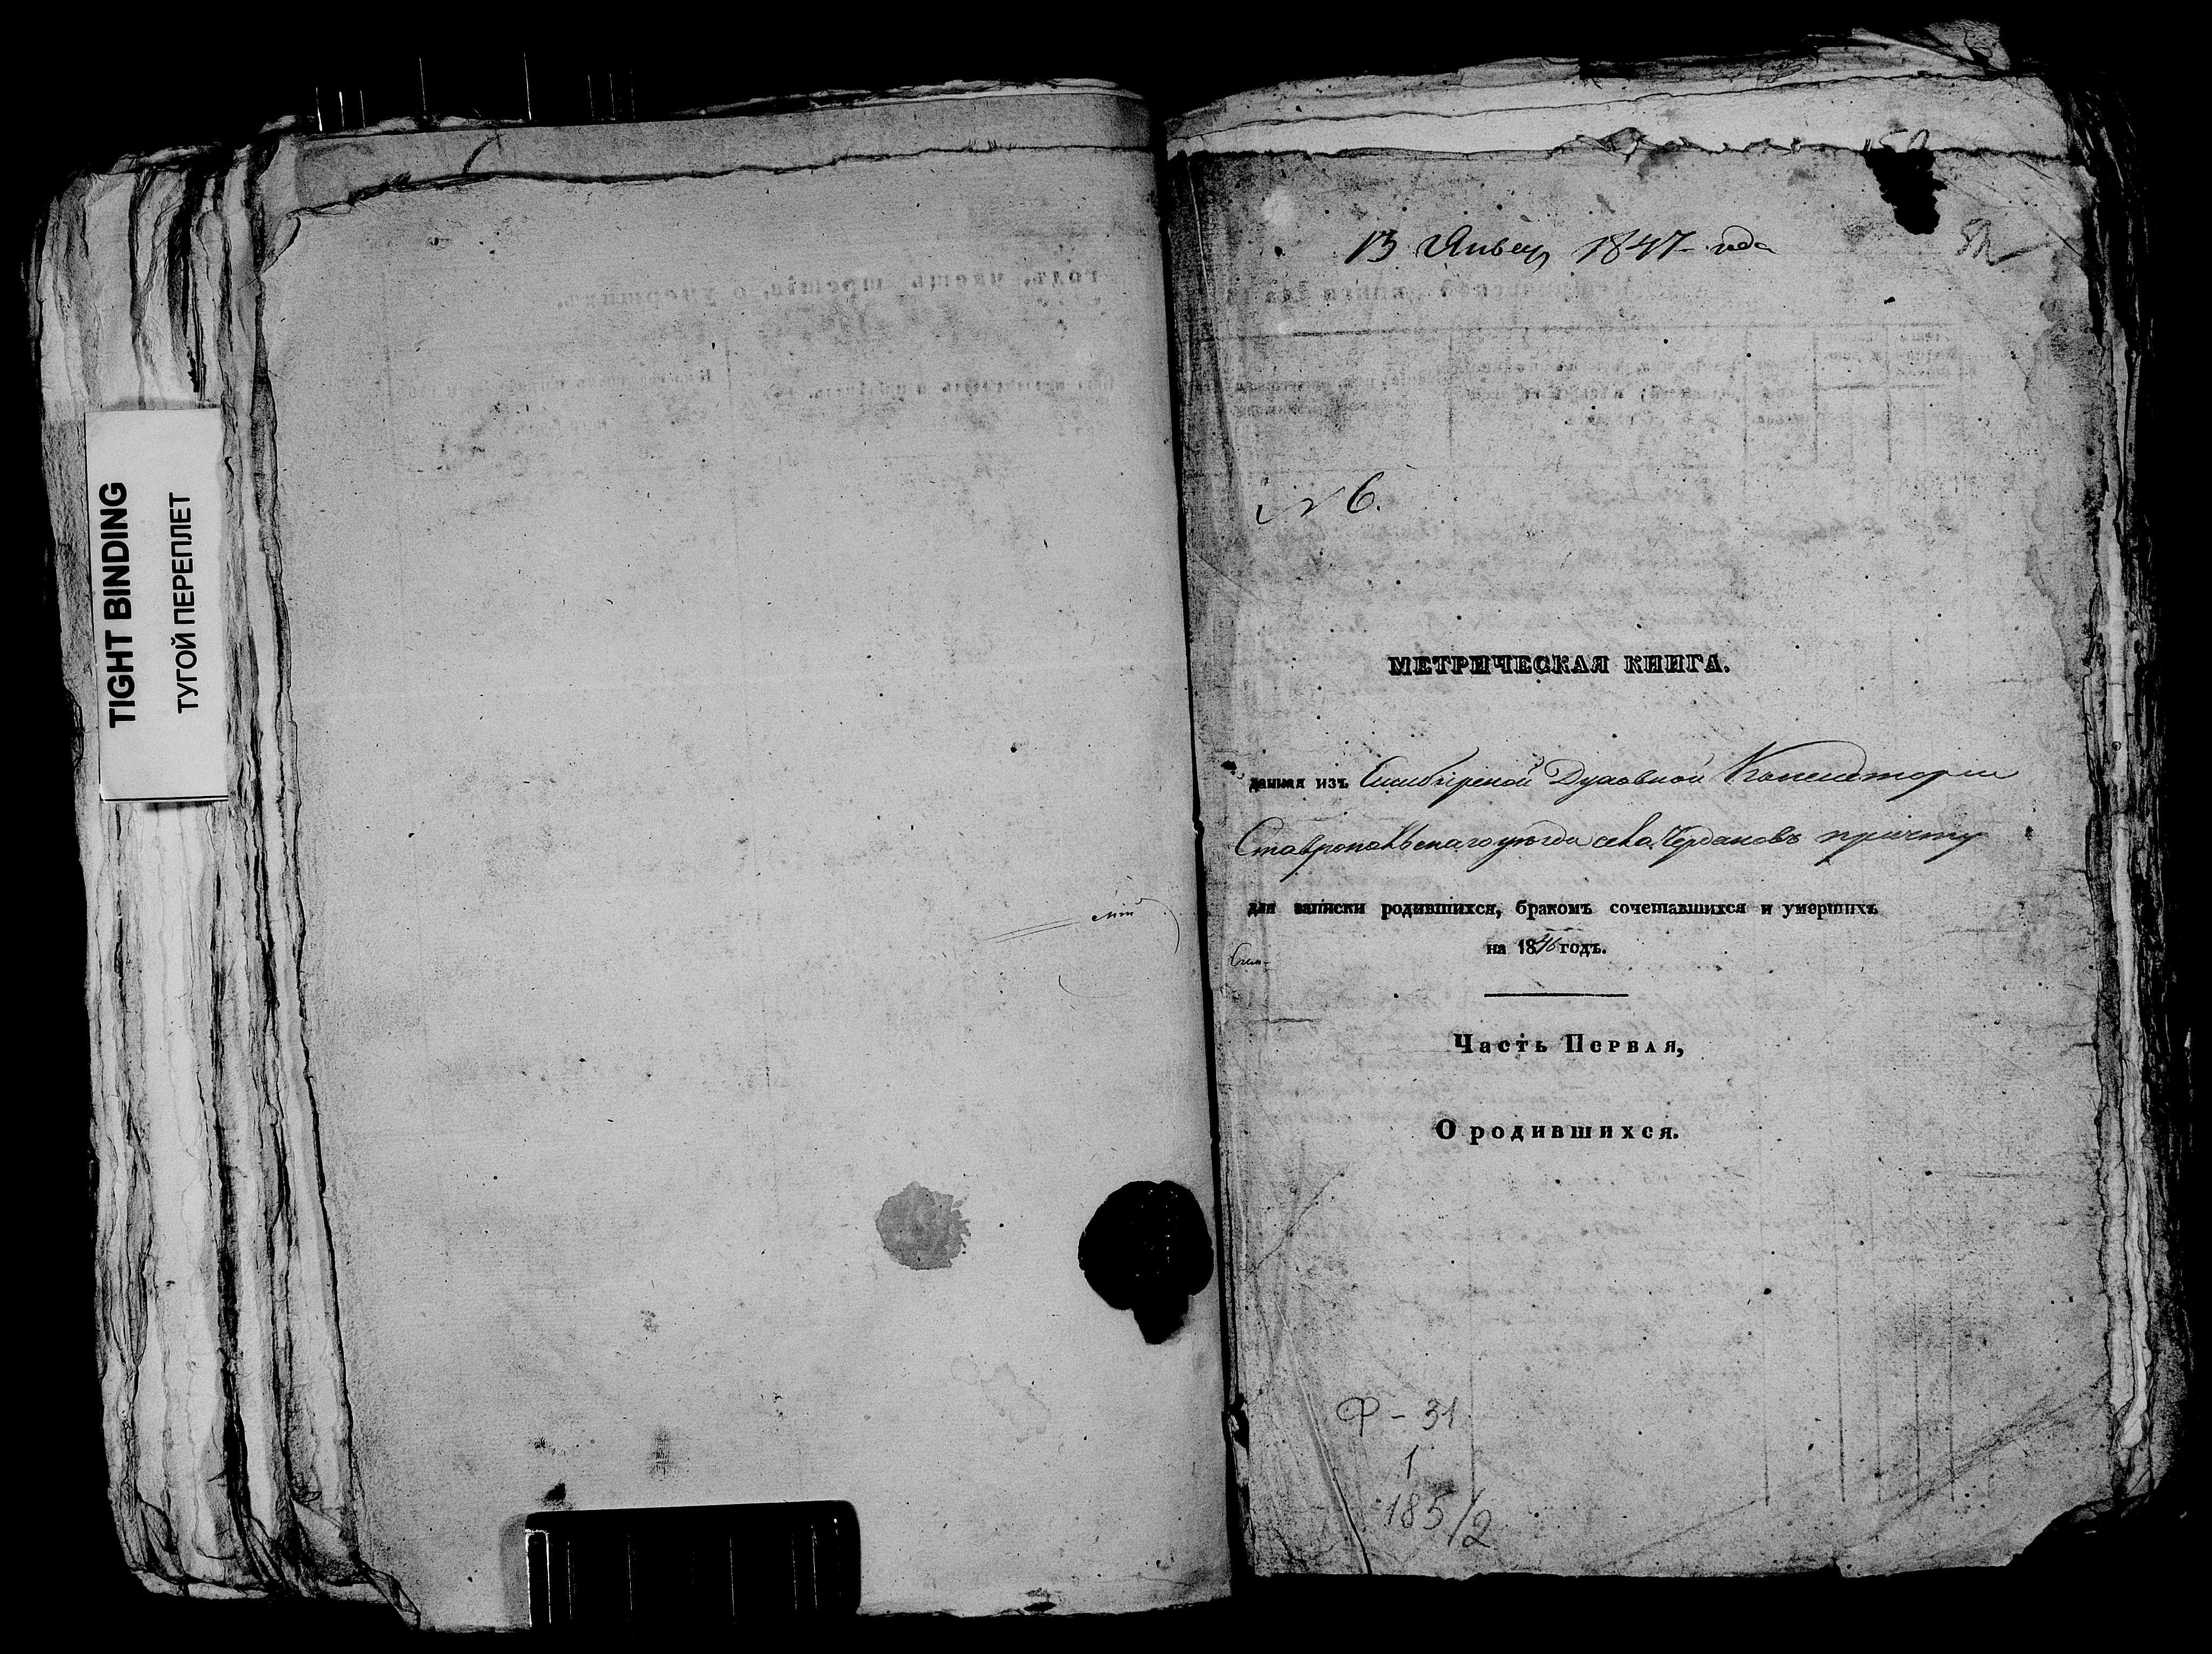 TIGHT BINDING
ТУГОЙ ПЕРЕПЛЕТ
13 Январ 1847 года
52
N 6.
МЕТРИЧЕСКАЯ КНИГА.
данная изъ Симбирской Духовной Консисторіи
Ставропольскаго уѣзда села Чердаковъ причту
для записки родившихся, бракомъ сочетавшихся и умершихъ
на 1846 годъ.
Часть Первая,
О родившихся.
Ф - 31
1
185/2